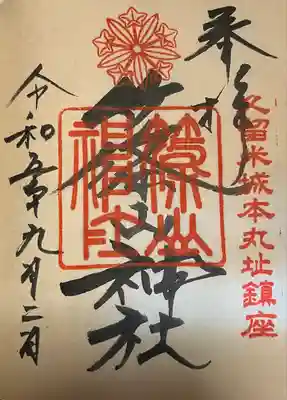 久留米城本丸址鎮座
奉拝
篠山神社
篠山神社
令和五年九月二日